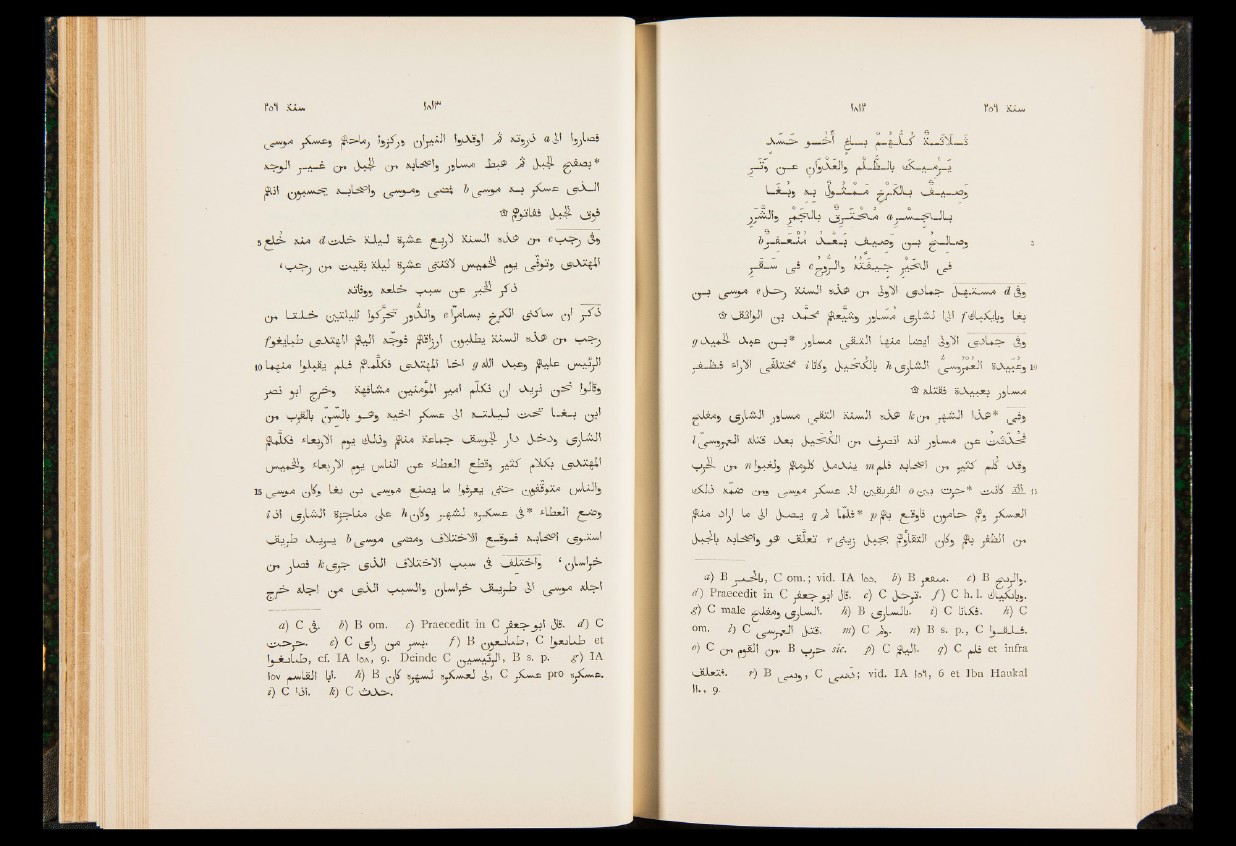 سنة ٢٥٦ ١٨١٢
ثَلَاثَـةٌ كُلُّهُمْ بـاغٍ أَخُو حَسَدٍ
يَرْمِيكَ بِالظُّلْمِ والعُدْوَانِ عـن وَتَرِ
وَصِيفُ بالكَرْخِ مَمْثُولٌ بِهِ وبُغَا
بالجِسْرِ a مُحْتَرِقٌ بالجَمْرِ والشَّرَرِ
5 وصالحُ بن وَصِيفٍ بَعْدُ مُنْعَفِرٌ b
فى الحَيْرِ جِيفَتُهُ والرُّوحُ c فى سَقَرِ
وفى d مستهـل جمادى الاولى من هذه السنة رحـل e موسى بـن
بغا وبايكباك f الى الشارى مُسَاور وشَيَّعهم محمّد بن الواثق ۞
وفى جمادى الاولى ايضا منها التقى مساور *بـن عبد الحميد g
10 وعُبَيدة العُمْروسىّ الشارى h بالكُحَيل وكانا i مختلفَى الآراء فظفر
مساور بعبيدة فقتله ۞
وفى *هذا الشهر من k هذه السنة التقى مساور الشارى ومفلح
فحُدِّثت عن مساور انه انصرف من الكُحَيل بعد قتله العمروسىّ l
وقد كُلم كثير من اصحابه فلم m يندمل كلومهم ولغبوا n من الحرب
15 التى كانت *جرت بين o الفريقين الى عسكر موسى ومن ضمّه ذلك
العسكر وهم حامون فاوقع بهم p *فلمّا لم q يصل الى ما اراد منهم
من الظفر بهم وكان التقاؤهم بجبل زينى r تعلّق هو واصحابه بالجبل
a) B بالحـسر, C om.; vid. IA ١٥٥. b) B منعقر. c) B والريح.
d) Praecedit in C قال ابو جعفر. e) C ترحل. f) C h. l. وبابكيال.
g) C male الـسارى ومفلح. h) B بالسارى. i) C فكانا. k) C
om. l) C قتل العرسى. m) C ولم. n) B s. p., C فلقوا.
o) C من القوم من B حرب sic. p) C اليهم. q) C فلم et infra
فتعلق. r) B وىىى, C نفسى; vid. IA ١٥٦, 6 et Ibn Haukal
9.
سنة ٢٥٦ ١٨١٣
فصاروا الى a ذروته ثم اوقدوا النيران وركزوا رماحهم وعسكر موسى
*بصفح الجبل ثم هبط مساور واصحابه من الجبل من غير الوجه
الـذى عسكر بـه موسى b فمضى ومـوسى واصحابـه يحسبون انهم
فوق الجبل ففاتوهم ۞
5 وفى رجب c من هذه السنة لاربع عشرة ليلـة خلت d منه خُلع
المهتدى وتوفّى يوم الخميس لاثنتى عشرة ليلة بقيت من رجب ،
ذكر الخبر عن سبب خلعه ووفاته
ذكر ان ساكنى الكرخ بسامرّا e والدور تحرّكوا لليلتين خلتـا من
رجب من هذه السنة يطلبون ارزاقهم فوجّه اليهم المهتدى طبايغو f
10 الرئيس عليهم وعبد الله g اخا المهتدى فكلّماهم فلم يقبلوا منهما
وقالوا نحن نريد ان نكلّم امير المؤمنين مشافهة وخرج ابو نصر
ابن بـغـا تحت ليـلـتـه الى عسكر اخيه وهـو بالسّنّ بالقرب من
الشارى ودخـل دار الجوسق جماعة منهم وذلك يوم الاربعاء فكلّمهم
المهتدى بكلام كثير وقطع العطاء عن الناس يوم الاربعاء والخميس
15 والناس متوقّفون حتى يعرفوا ما يصنع موسى بن بغا وكان موسى
وضع العطاء *فى عسكره لشهر وكان h على مناجزة الشارى اذا i
استوى اصحابه فـوقـع الاختلاف ومضى موسى b يـريـد طريق
خراسان ، واختلف فى سبب الاختلاف الذى جرى k فصار من
اجله موسى الى طـريـق خراسان والسبب الذى من اجله خرج
a) C فى. b) B om. c) Praecedit in C قال ابو جعفر. d) C
خرجت. e) C بسر من راى. f) B طبايغون, C طبايعوا et
طبايعوا, cf. IA ١٥٨, 9. Deinde C الرئيسين, B s. p. g) IA
١٥٧ ابا القاسم. h) B الى لعسكره لشهره كان, C عسكر pro عسكره.
i) C اذا. k) C حدث.